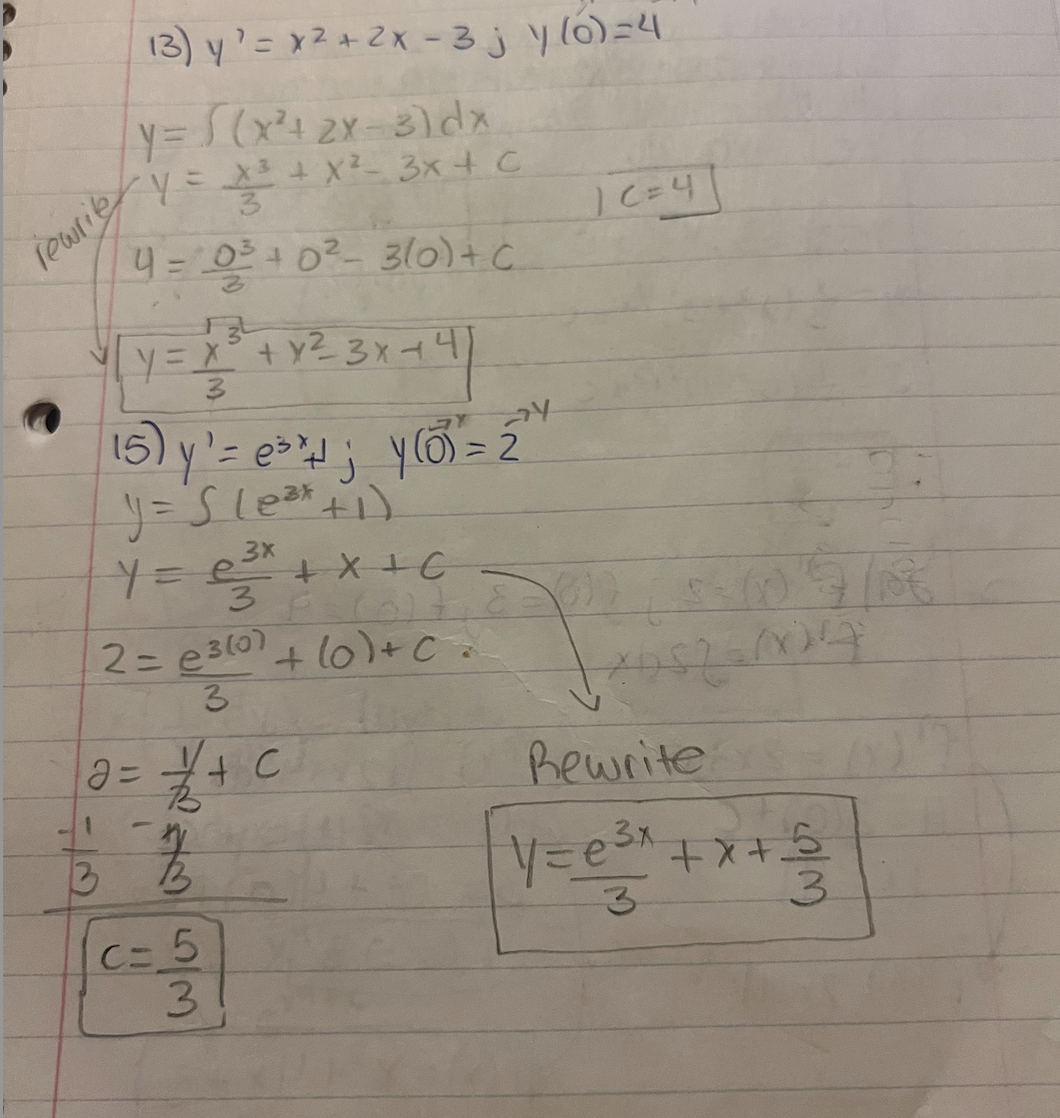 13) y' = x² + 2x - 3 ; y(0)=4
y = ∫(x²+ 2x - 3) dx
y = x³/3 + x² - 3x + C
rewrite
C = 4
4 = 0³/3 + 0² - 3(0) + C
y = x³/3 + x² - 3x + 4
15) y' = e³ˣ+1 ; y(0)→x = 2→y
y = ∫(e³ˣ + 1)
y = e³ˣ/3 + x + C
2 = e³⁽⁰⁾/3 + (0) + C
2 = 1/3 + C
-1/3 - 1/3
C = 5/3
Rewrite
y = e³ˣ/3 + x + 5/3